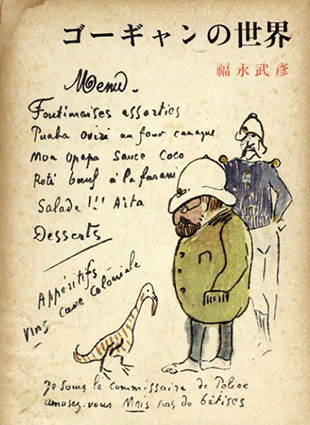 ゴーギャンの世界
福永武彦
Menu
Foutimaises assorties
Puaba oviri au four canaque
Moa opapa Sauce Coco
Roti bœuf à la farani
Salade !!! Aita
Desserts
Appéritifs
Vins cave Coloniale
Je Soug le Commissaire de Police
amusez-vous Mais pas de bétises